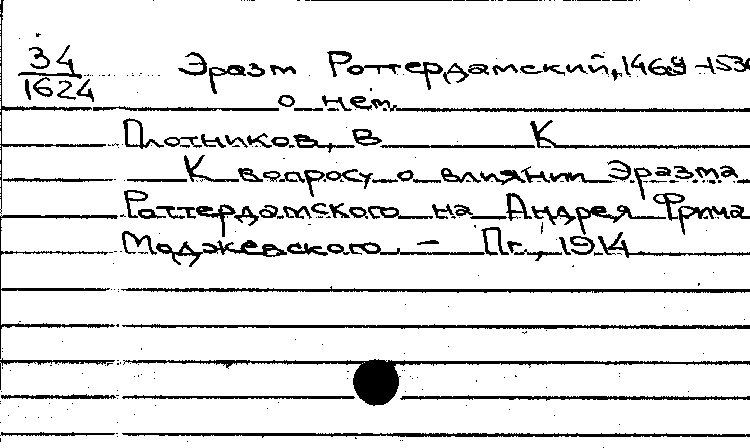 34
1624
Эразм Роттердамский, 1469-1536
о нем.
Плотников, В К
К вопросу о влиянии Эразма
Роттердамского на Андрея Фрича
Моджевского. - Пг., 1914